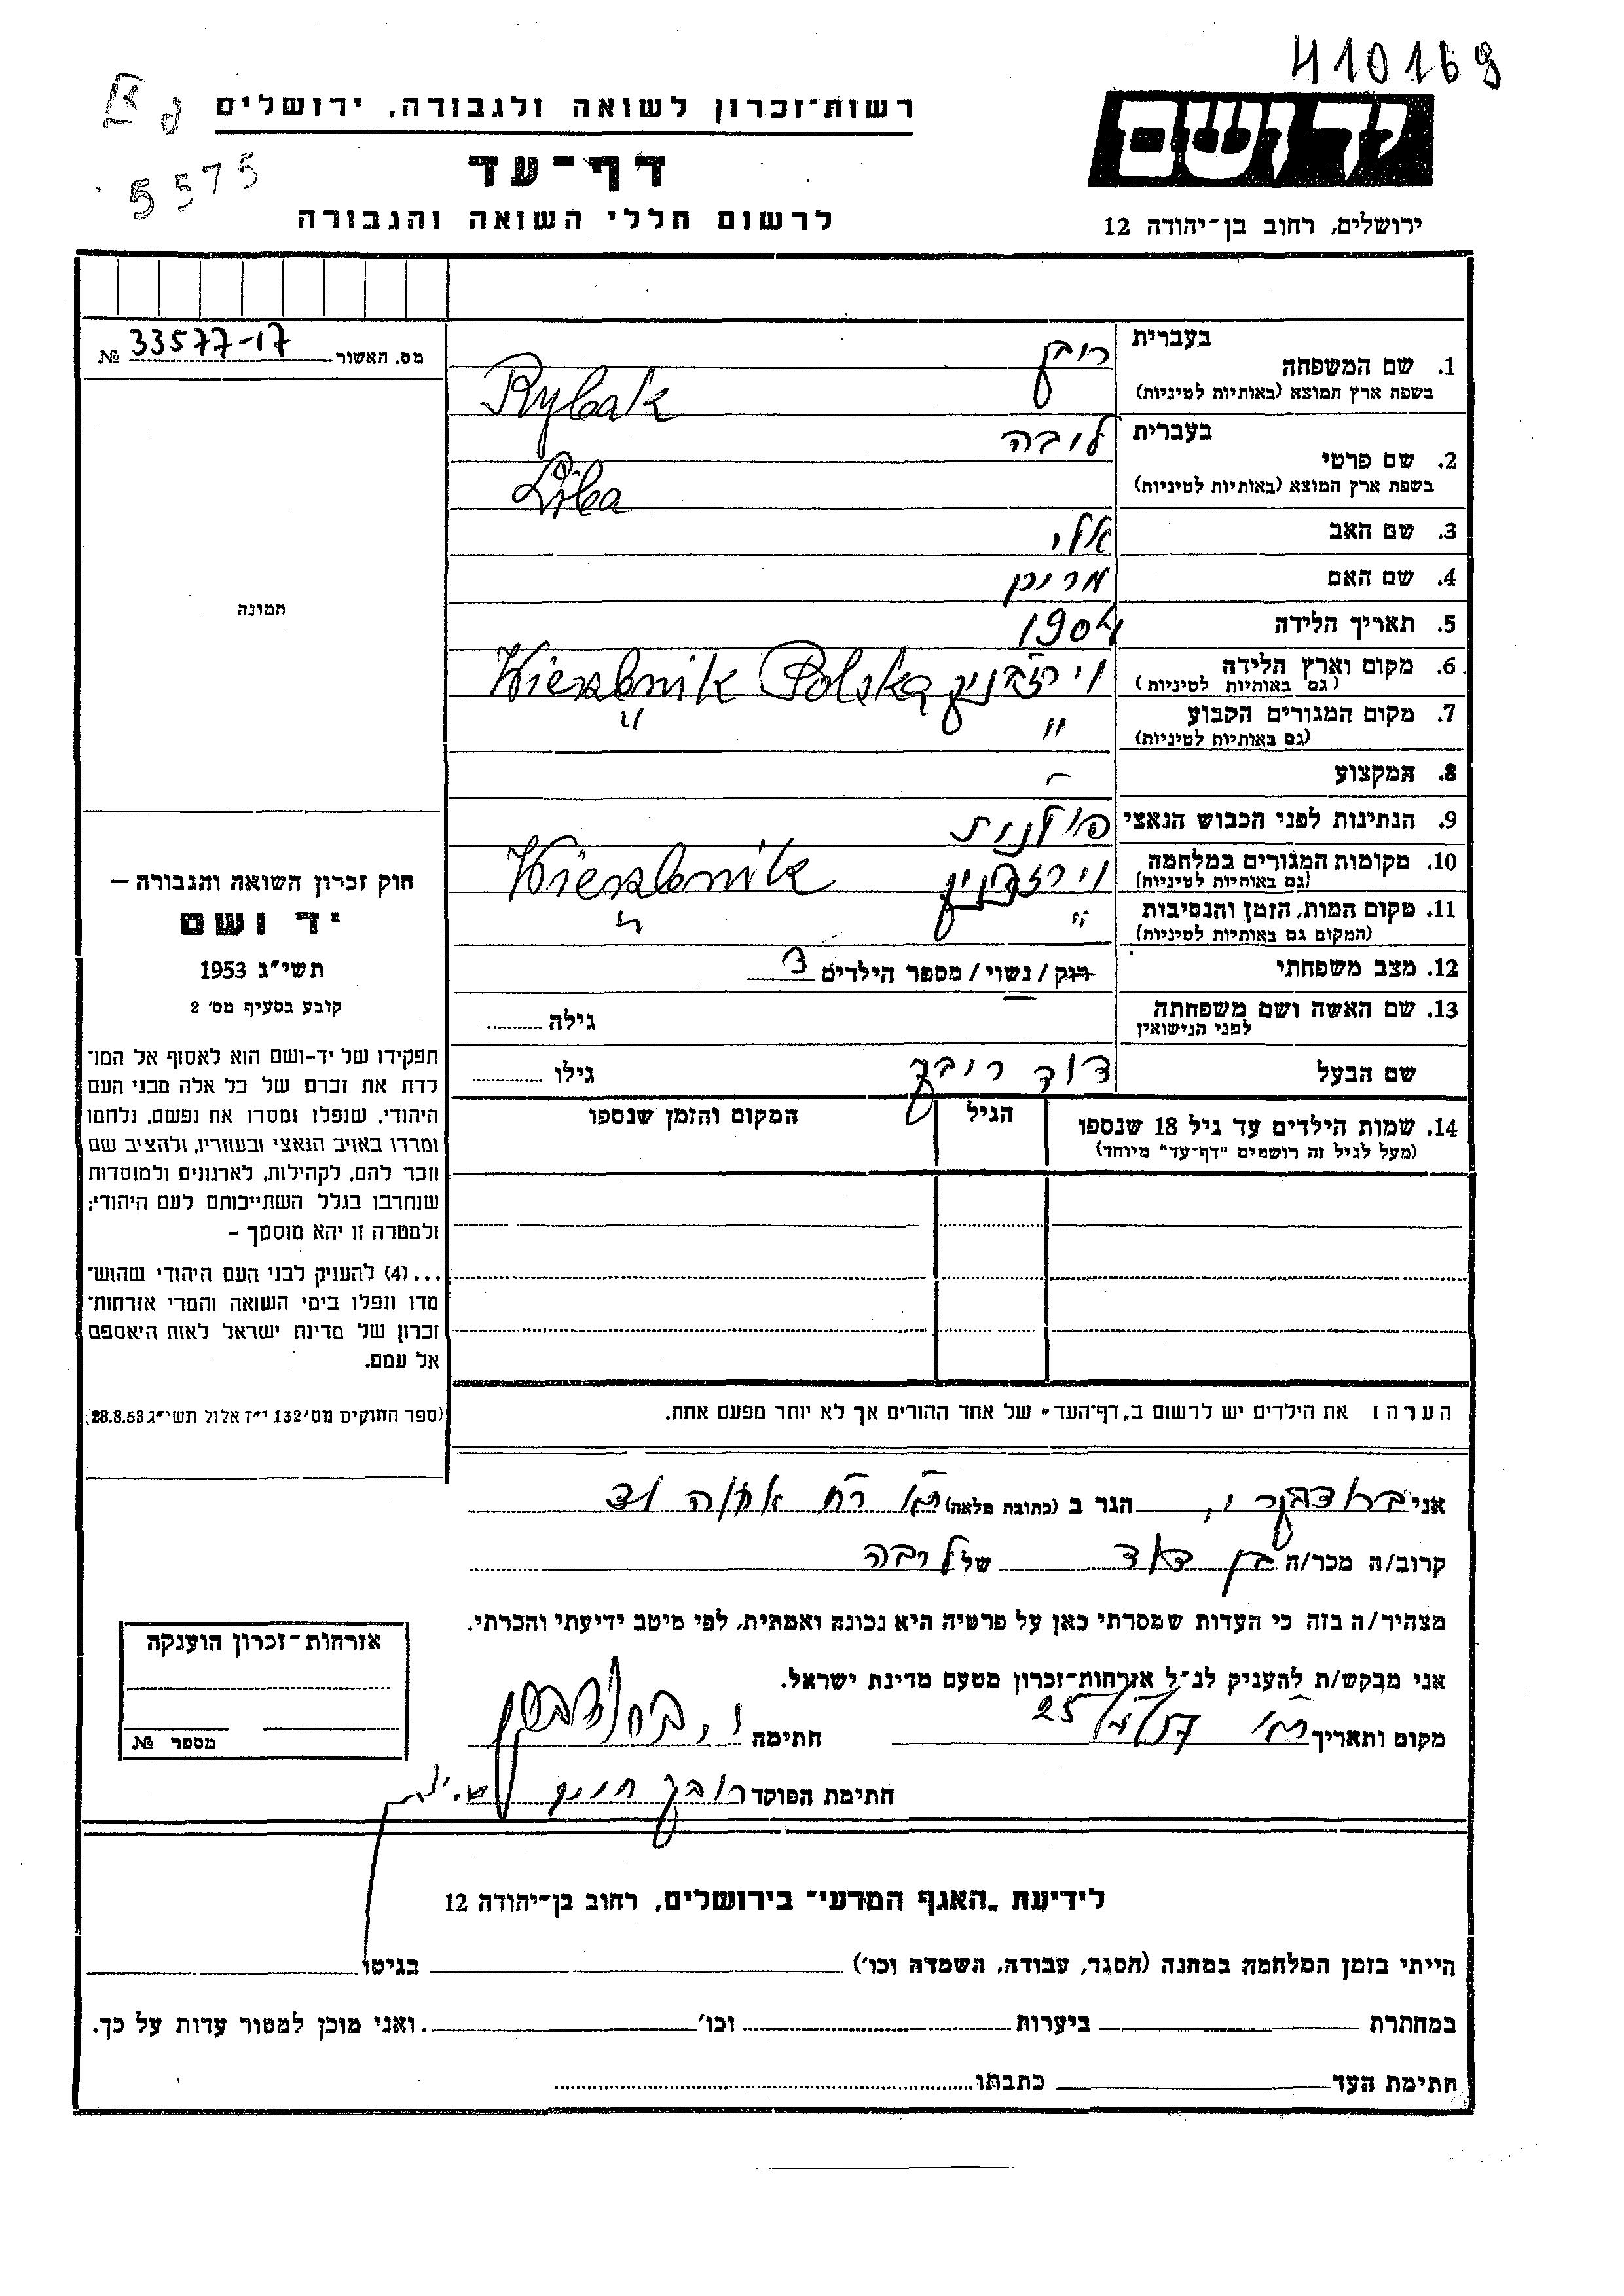 410169
רשות-זכרון לשואה ולגבורה, ירושלים
5575
דף-עד
לרשום חללי השואה והגבורה
יד ושם
ירושלים, רחוב בן-יהודה 12
מס. האשור 33577-17 №
תמונה
חוק זכרון השואה והגבורה –
יד ושם
תשי״ג 1953
קובע בסעיף מס׳ 2
תפקידו של יד-ושם הוא לאסוף אל המו־
לדת את זכרם של כל אלה מבני העם
היהודי, שנפלו ומסרו את נפשם, נלחמו
ומרדו באויב הנאצי ובעוזריו, ולהציב שם
וזכר להם, לקהילות, לארגונים ולמוסדות
שנחרבו בגלל השתייכותם לעם היהודי;
ולמטרה זו יהא מוסמך –
...(4) להעניק לבני העם היהודי שהוש־
מדו ונפלו בימי השואה והמרי אזרחות־
זכרון של מדינת ישראל לאות היאספם
אל עמם.
(ספר החוקים מס׳ 132 י״ז אלול תשי״ג 28.8.53)
1. שם המשפחה בעברית ריבק
בשפת ארץ המוצא (באותיות לטיניות) Rybak
2. שם פרטי בעברית ליבה
בשפת ארץ המוצא (באותיות לטיניות) Liba
3. שם האב אלי
4. שם האם
5. תאריך הלידה 1904
6. מקום וארץ הלידה וירזבניק Wierzbnik Polska
(גם באותיות לטיניות)
7. מקום המגורים הקבוע " "
(גם באותיות לטיניות)
8. המקצוע –
9. הנתינות לפני הכבוש הנאצי פולנית
10. מקומות המגורים במלחמה וירזבניק Wierzbnik
(גם באותיות לטיניות)
11. מקום המות, הזמן והנסיבות " "
(המקום גם באותיות לטיניות)
12. מצב משפחתי רוק / נשוי / מספר הילדים 3
13. שם האשה ושם משפחתה גילה
לפני הנישואין
שם הבעל דוד ריבק גילו
14. שמות הילדים עד גיל 18 שנספו הגיל המקום והזמן שנספו
(מעל לגיל זה רושמים "דף-עד" מיוחד)
הערה: את הילדים יש לרשום ב„דף-העד" של אחד ההורים אך לא יותר מפעם אחת.
אני הגר ב (כתובת מלאה)
קרוב/ה מכר/ה בן דוד של ליבה
מצהיר/ה בזה כי העדות שמסרתי כאן על פרטיה היא נכונה ואמתית, לפי מיטב ידיעתי והכרתי.
אני מבקש/ת להעניק לנ״ל אזרחות-זכרון מטעם מדינת ישראל.
מקום ותאריך חתימה
חתימת הפוקד
אזרחות-זכרון הוענקה
מספר №
לידיעת „האגף המדעי" בירושלים, רחוב בן-יהודה 12
הייתי בזמן המלחמה במחנה (הסגר, עבודה, השמדה וכו׳) בגיטו
במחתרת ביערות וכו׳ ואני מוכן למסור עדות על כך.
חתימת העד כתבתו